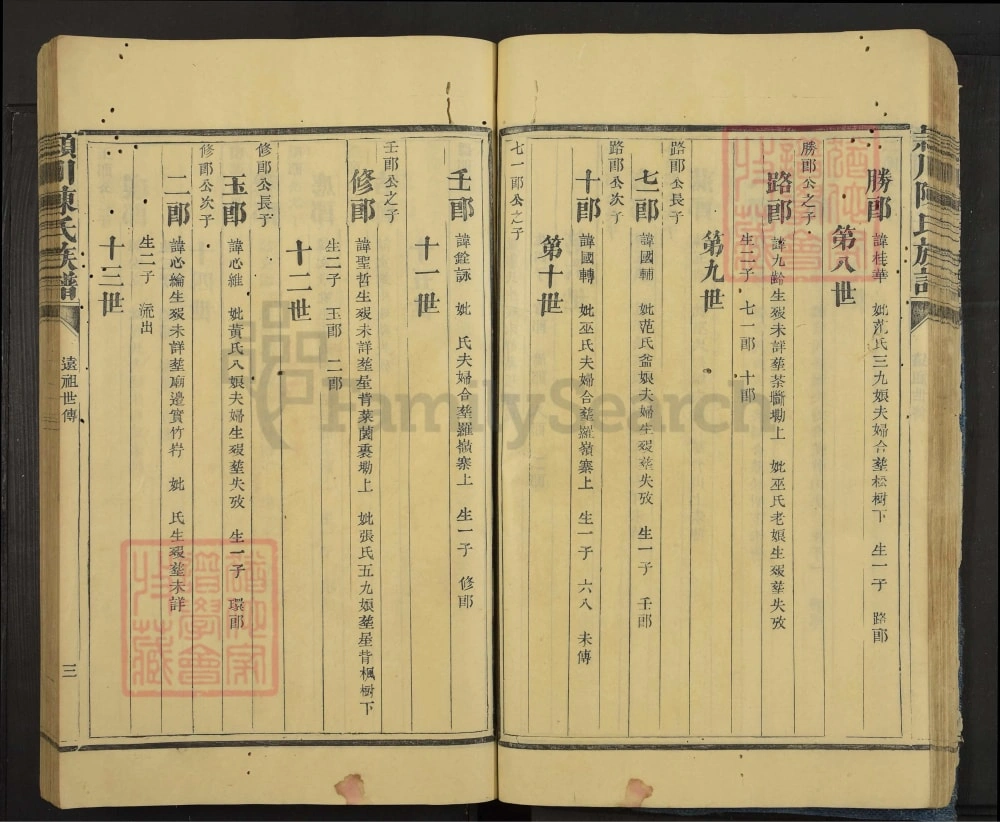 勝郎 諱桂華 妣范氏三九娘夫婦合塟松樹下 生一子 路郎
第八世
勝郎公之子
路郎 諱九齡生歿未詳塟茶𭏟墈上 妣巫氏老娘生歿塟失攷
生二子 七一郎 十郎
第九世
路郎公長子
七一郎 諱國輔 妣范氏益娘夫婦生歿塟失攷 生一子 壬郎
路郎公次子
十郎 諱國轉 妣巫氏夫婦合塟羅嶺寨上 生一子 六八 未傳
第十世
七一郎公之子
壬郎 諱銓詠 妣 氏夫婦合塟羅嶺寨上 生一子 修郎
十一世
壬郎公之子
修郎 諱聖哲生歿未詳塟星背菜園裏墈上 妣張氏五九娘塟星背楓樹下
生二子 玉郎 二郎
十二世
修郎公長子
玉郎 諱心維 妣黃氏八娘夫婦生歿塟失攷 生一子 環郎
修郎公次子
二郎 諱心綸生歿未詳塟廟邊實竹 妣 氏生歿塟未詳
生二子 流出
十三世
潁川陳氏族譜
遠祖世傳
三
FamilySearch